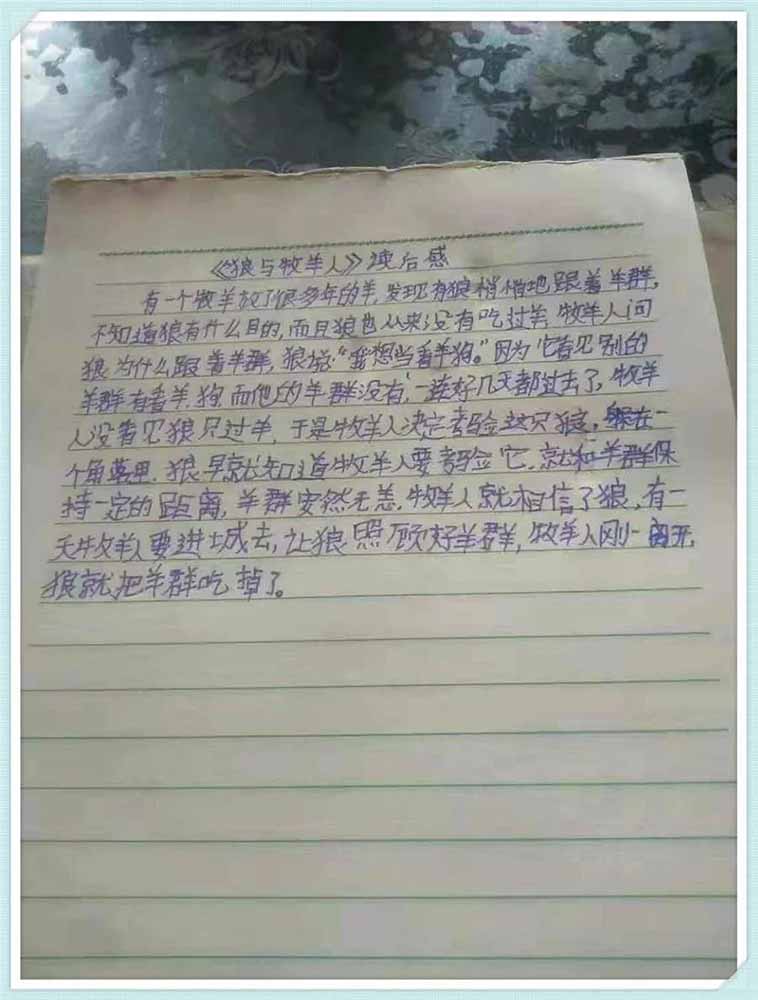 《狼与牧羊人》读后感
有一个牧羊放了很多年的羊,发现有狼悄悄地跟着羊群,
不知道狼有什么目的,而且狼也从来没有吃过羊,牧羊人问
狼为什么跟着羊群,狼说:“我想当看羊狗。”因为它看见别的
羊群有看羊狗而他的羊群没有,一连好几天都过去了,牧羊
人没看见狼只过羊,于是牧羊人决定考验这只狼,躲在一
个角落里.狼早就知道牧羊人要考验它,就和羊群保
持一定的距离,羊群安然无恙.牧羊人就相信了狼,有一
天牧羊人要进城去,让狼照顾好羊群,牧羊人刚一离开,
狼就把羊群吃掉了。